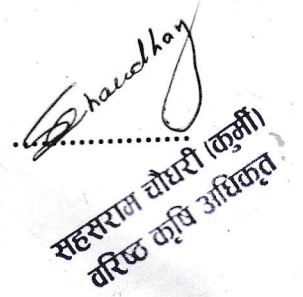 Chaudhary
....................
सहसराम चौधरी (कुर्मी)
वरिष्ठ कृषि अधिकृत